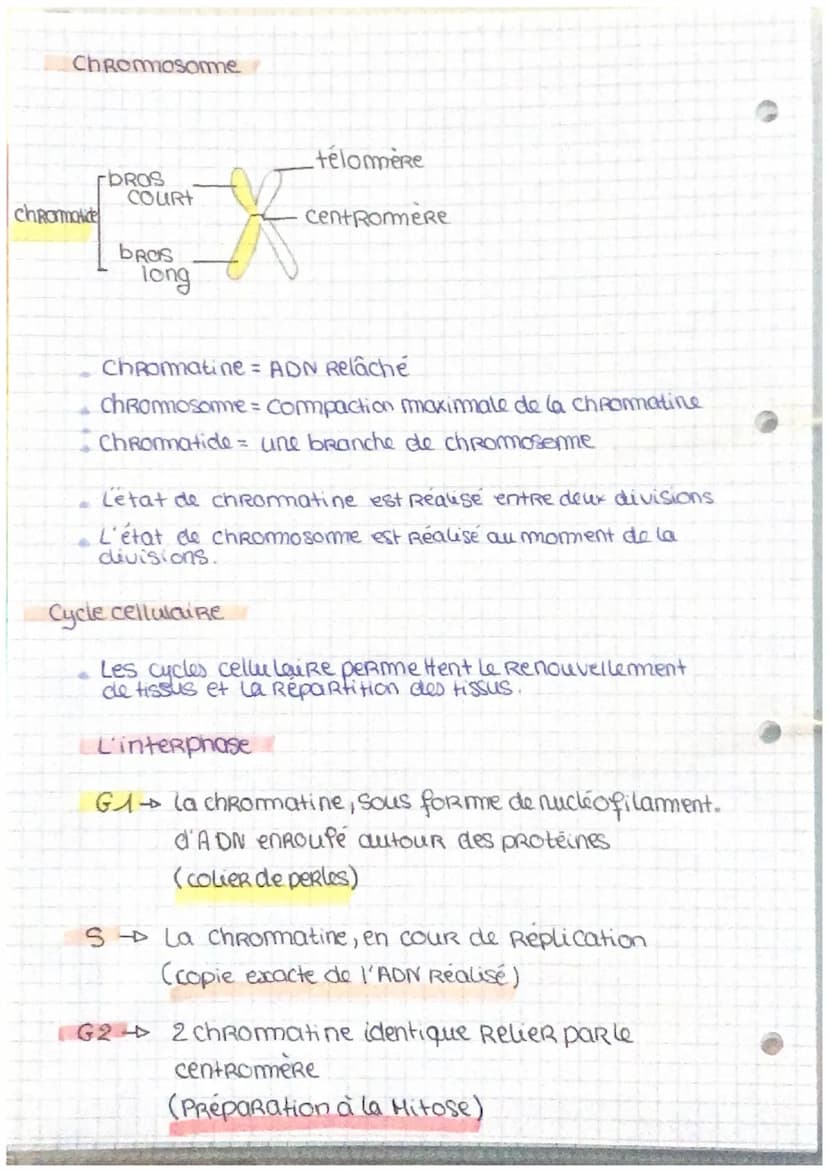 Chromosome
télomère
bras
court
chromatide
centromère
bras
long
Chromatine = ADN Relâché
chromosome = compaction maximale de la chromatine
Chromatide = une branche de chromosome
L'état de chromatine est Réalisé entre deux divisions
L'état de chromosome est Réalisé au moment de la
divisions.
Cycle cellulaire
Les cycles cellulaire permettent le Renouvellement
de tissus et la Répartition des tissus.
L'interphase
G1 → la chromatine, sous forme de nucléofilament.
d'ADN enroulé autour des protéines
(colier de perles)
S → La chromatine, en cour de Réplication
(copie exacte de l'ADN Réalisé)
G2 → 2 chromatine identique Relier par le
centromère
(Préparation à la Mitose)